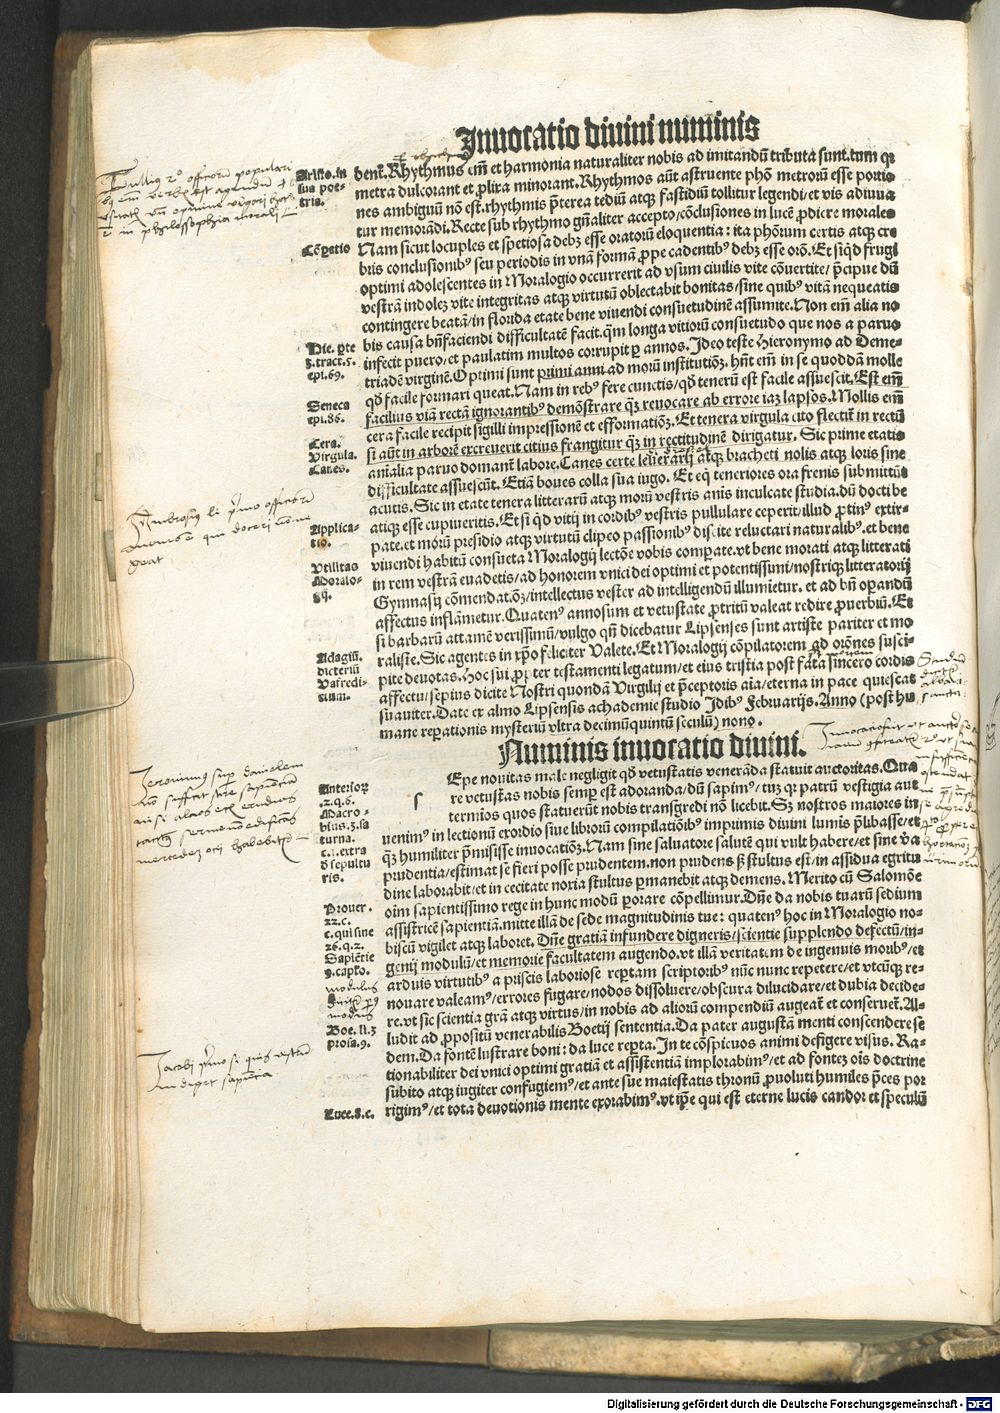 Inuocatio diuini numinis
Aristo.in
sua poe-
tria.
bent̄.Rhythmus em̄ et harmonia naturaliter nobis ad imitandū tributa sunt.tum qꝛ
metra dulcorant et ꝓlixa minorant.Rhythmos aūt astruente phō metroꝝ esse portio
nes ambiguū nō est.rhythmis p̄terea tediū atqꝫ fastidiū tollitur legendi/et vis adiuua
tur memorādi.Recte sub rhythmo gn̄aliter accepto/cōclusiones in lucē ꝓdiere morales
Cōꝑatio
Nam sicut locuples et spetiosa debꝫ esse oratorū eloquentia: ita phōrum certis atqꝫ cre
bris conclusionibꝰ seu periodis in vnā formā ꝓpe cadentibꝰ debꝫ esse orō. Et siqͥd frugi
optimi adolescentes in Moralogio occurrerit ad vsum ciuilis vite cōuertite/ p̄cipue dū
vestrā indoleꝫ vite integritas atqꝫ virtutū oblectabit bonitas/sine quibꝰ vitā nequeatis
contingere beatā/in florida etate bene viuendi consuetudinē assumite.Non em̄ alia no
bis causa bn̄faciendi difficultatē facit.qm̄ longa vitiorū consuetudo que nos a paruo
Hie. ꝑte
3.tract.5.
epi.69.
infecit puero/et paulatim multos corrupit ꝑ annos. Ideo teste Hieronymo ad Deme-
triadē virginē.Optimi sunt primi anni ad morū institutiōꝫ. hn̄t em̄ in se quoddā molle
qd̄ facile formari queat.Nam in rebꝰ fere cunctis/qd̄ tenerū est facile assuescit.Est em̄
Seneca
epi.86.
facilius viā rectā ignorantibꝰ demōstrare qͣꝫ reuocare ab errore iaꝫ lapsos.Mollis em̄
Cera.
Virgula.
Canes.
cera facile recipit sigilli impressionē et efformatiōꝫ. Et tenera virgula cito flectit̄ in rectū
si aūt in arborē excreuerit citius frangitur qͣꝫ in rectitudinē dirigatur. Sic prime etatis
an̄malia paruo domant̄ labore.Canes certe leuerarij atqꝫ bracheti nolis atqꝫ loris sine
difficultate assuescūt. Etiā boues colla sua iugo. Et eqͥ teneriores ora frenis submittūt
acutis. Sic in etate tenera litterarū atqꝫ morū vestris anis inculcate studia.dū docti be
atiqꝫ esse cupiueritis. Et si qͥd vitij in cordibꝰ vestris pullulare ceperit/illud ꝓtinꝰ extir-
Applica-
tio.
pate.et morū presidio atqꝫ virtutū clipeo passionibꝰ discite reluctari naturalibꝰ.et bene
viuendi habitū consueta Moralogij lectōe vobis comparate.vt bene morati atqꝫ litterati
Vtilitas
Moralo-
gij.
in rem vestrā euadetis/ad honorem vnici dei optimi et potentissimi/nostriqꝫ litteratorij
Gymnasij cōmendatōꝫ/intellectus vester ad intelligendū illumietur. et ad bn̄ operandū
affectus inflāmetur.Quatenꝰ annosum et vetustate ꝓtritū valeat redire ꝓuerbiū. Et
si barbarū attamē verissimū/vulgo qn̄ dicebatur Lipsenses sunt artiste pariter et mo
Adagiū.
dicteriū
Vafredi-
ctum.
raliste.Sic agentes in xp̄o feliciter Valete.Et Moralogij cōpilatorem ad orōnes susci-
pite deuotas.Hoc sui ꝓpter testamenti legatum/et eius tristia post fata sincero cordis
affectu/sepius dicite Nostri quondā Virgilij et p̄ceptoris aīa/eterna in pace quiescat
suauiter.Date ex almo Lipsensis achademie studio Idibꝰ Februarijs. Anno (post hu
mane reparationis mysteriū vltra decimūquintū seculū) nono.
Numinis inuocatio diuini.
Epe nouitas male negligit qd̄ vetustatis venerāda statuit auctoritas.Qua
Anterior
.2.q.6.
Macro-
bius.3.sa
turna.
c.1.extra
d̄ sepultu
ris.
re vetustas nobis semp̄ est adoranda/dū sapimꝰ/tuꝫ qꝛ patrū vestigia aut
termios quos statuerūt nobis transgredi nō licebit. Sꝫ nostros maiores in
uenimꝰ in lectionū exordio siue librorū compilatiōibꝰ imprimis diuini lumis p̄libasse/et
qͣꝫ humiliter p̄misisse inuocatiōꝫ.Nam sine saluatore salutē qui vult habere/et sine va
prudentia/estimat se fieri posse prudentem.non prudens sꝫ stultus est/in assidua egritu
dine laborabit/et in cecitate noxia stultus ꝑmanebit atqꝫ demens. Merito cū Salomōe
Prouer.
22.c.
c.qui sine
26.q.2.
Sapiētie
9.capło.
oim̄ sapientissimo rege in hunc modū ꝑorare cōpellimur.Dn̄e da nobis tuarū sedium
assistricē sapientiā.mitte illā de sede magnitudinis tue: quatenꝰ hoc in Moralogio no-
biscū vigilet atqꝫ laboret. Dn̄e gratiā infundere digneris/scientie supplendo defectū/in-
genij modulū/et memorie facultatem augendo.vt illā veritatem de ingenuis moribꝰ/et
modulus
arduis virtutibꝰ a priscis laboriose reꝑtam scriptoribꝰ nūc nunc repetere/et vtcūqꝫ re-
nouare valeamꝰ/errores fugare/nodos dissoluere/obscura dilucidare/et dubia decide-
Boe. li.3
prosa.9.
re.vt sic scientia grā atqꝫ virtus/in nobis ad aliorū compendiū augeat̄ et conseruet̄. Al-
ludit ad ꝓpositū venerabilis Boetij sententia.Da pater augustā menti conscendere se
dem.Da fontē lustrare boni: da luce reꝑta.In te cōspicuos animi defigere visus. Ra-
tionabiliter dei vnici optimi gratiā et assistentiā implorabimꝰ/et ad fonteꝫ oīs doctrine
subito atqꝫ iugiter confugiemꝰ/et ante sue maiestatis thronū ꝓuoluti humiles p̄ces por
Luce.8.c.
rigimꝰ/et tota deuotionis mente exorabimꝰ.vt ip̄e qui est eterne lucis candor et speculū
Digitalisierung gefördert durch die Deutsche Forschungsgemeinschaft - DFG